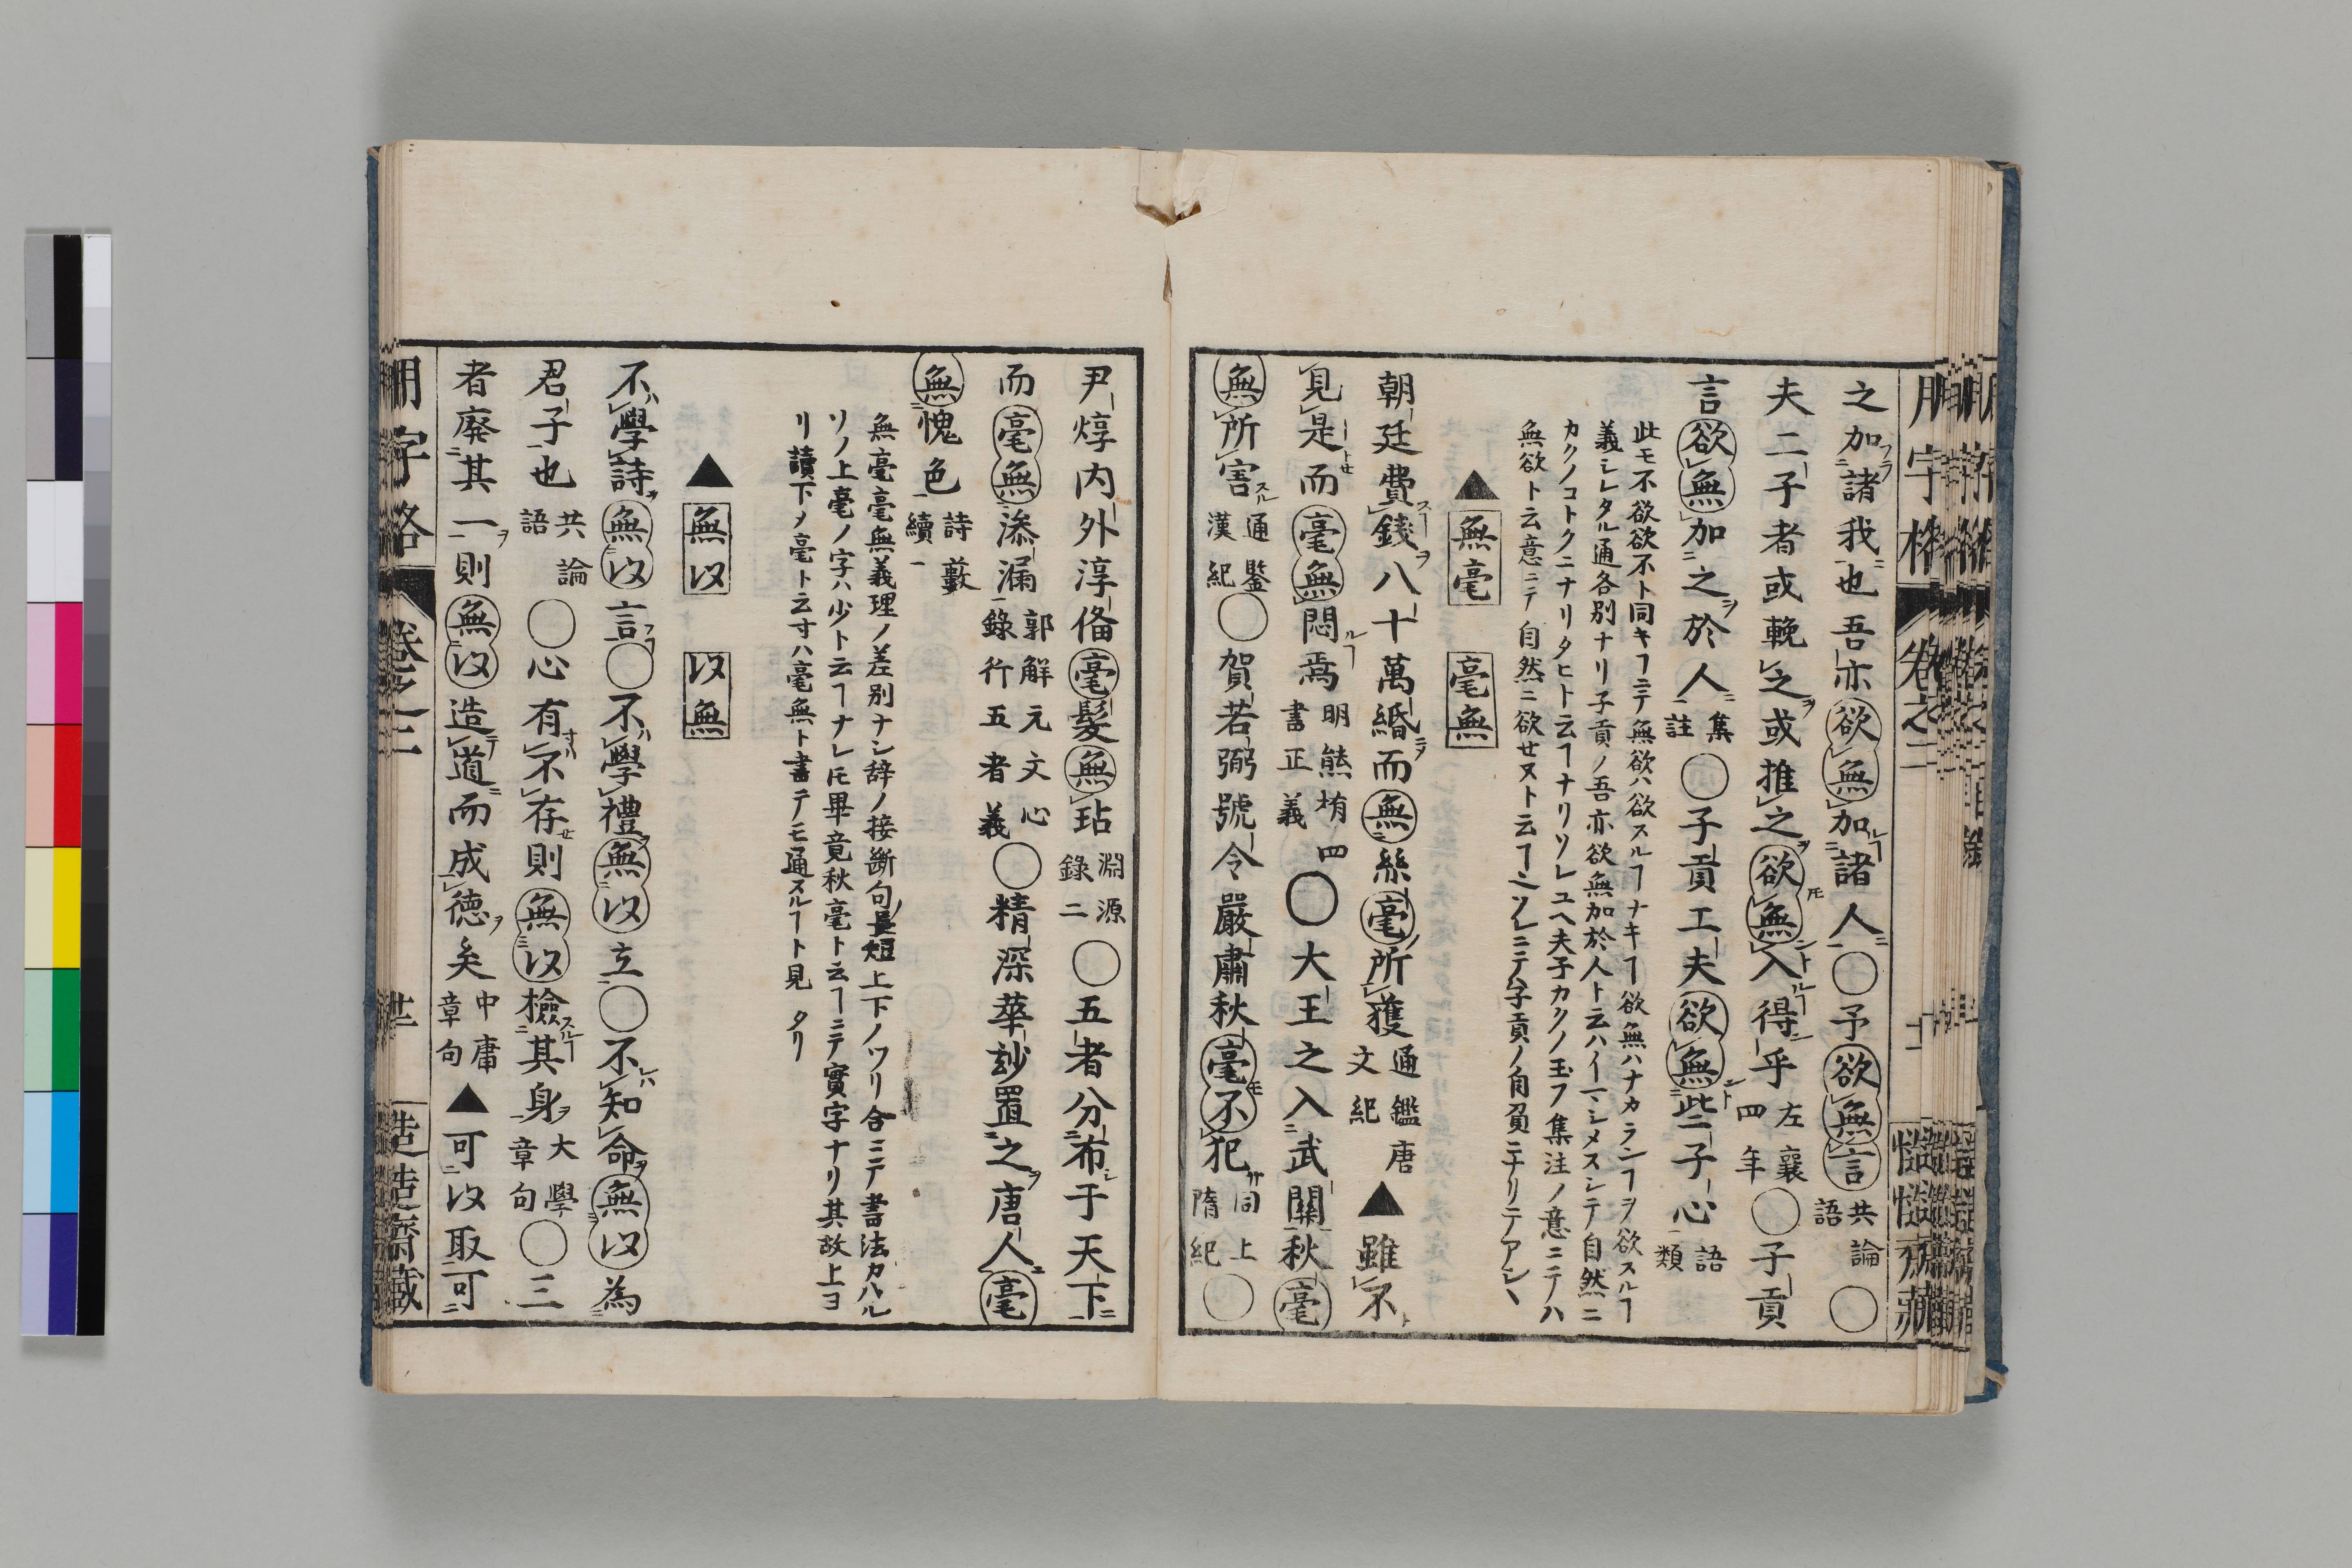 之加諸我也吾亦欲無加諸人○予欲無言共論語○
夫二子者或輓之或推之欲無入得乎左襄四年○子貢
言欲無加之於人集註○子貢工夫欲無些子心語類
此モ不欲欲不ト同キヿニテ無欲ハ欲スルヿナキヿ欲無ハナカランヿヲ欲スルヿ
義シレタル通各別ナリ子貢ノ吾亦欲無加於人ト云ハイマシメスシテ自然ニ
カクノコトクニナリタヒト云ヿナリソレユヘ夫子カクノ玉フ集注ノ意ニテハ
無欲ト云意ニテ自然ニ欲セヌト云ヿ
▲無毫 毫無
朝廷費錢八十萬緡而無絲毫所獲通鑑唐文紀▲雖不
見是而毫無悶焉明熊㘽四書正義○大王之入武關秋毫
無所害通鑒漢紀○賀若弼號令嚴肅秋毫不犯同上隋紀○
尹焞内外淳俻毫髮無玷淵源錄二○五者分布于天下
而毫無滲漏郭解元文心錄行五者義○精深華玅置之唐人毫
無愧色詩藪續一
無毫毫無義理ノ差別ナシ辞ノ接斷句長短上下ノツリ合ニテ書法カハル
ソノ上毫ノ字ハ少ト云ヿナレ𪜈畢竟秋毫ト云ヿニテ實字ナリ其故上ヨ
リ讀下ノ毫ト云寸ハ毫無ト書テモ通スルヿト見タリ
▲無以 以無
不學詩無以言○不學禮無以立○不知命無以為
君子也共論語○心有不存則無以檢其身大學章句○三
者廢其一則無以造道而成德矣中庸章句▲可以取可